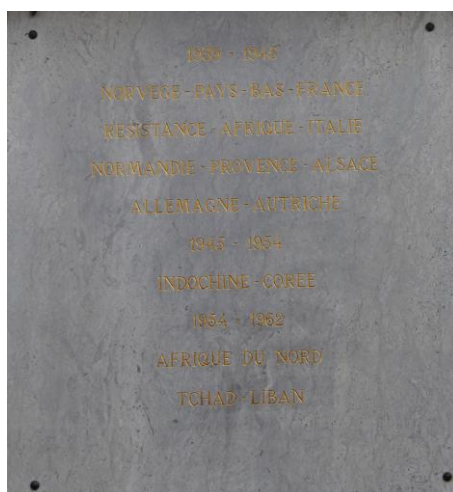 1939 - 1945
NORVEGE - PAYS-BAS - FRANCE
RESISTANCE - AFRIQUE - ITALIE
NORMANDIE - PROVENCE - ALSACE
ALLEMAGNE - AUTRICHE
1945 - 1954
INDOCHINE - COREE
1954 - 1962
AFRIQUE DU NORD
TCHAD - LIBAN